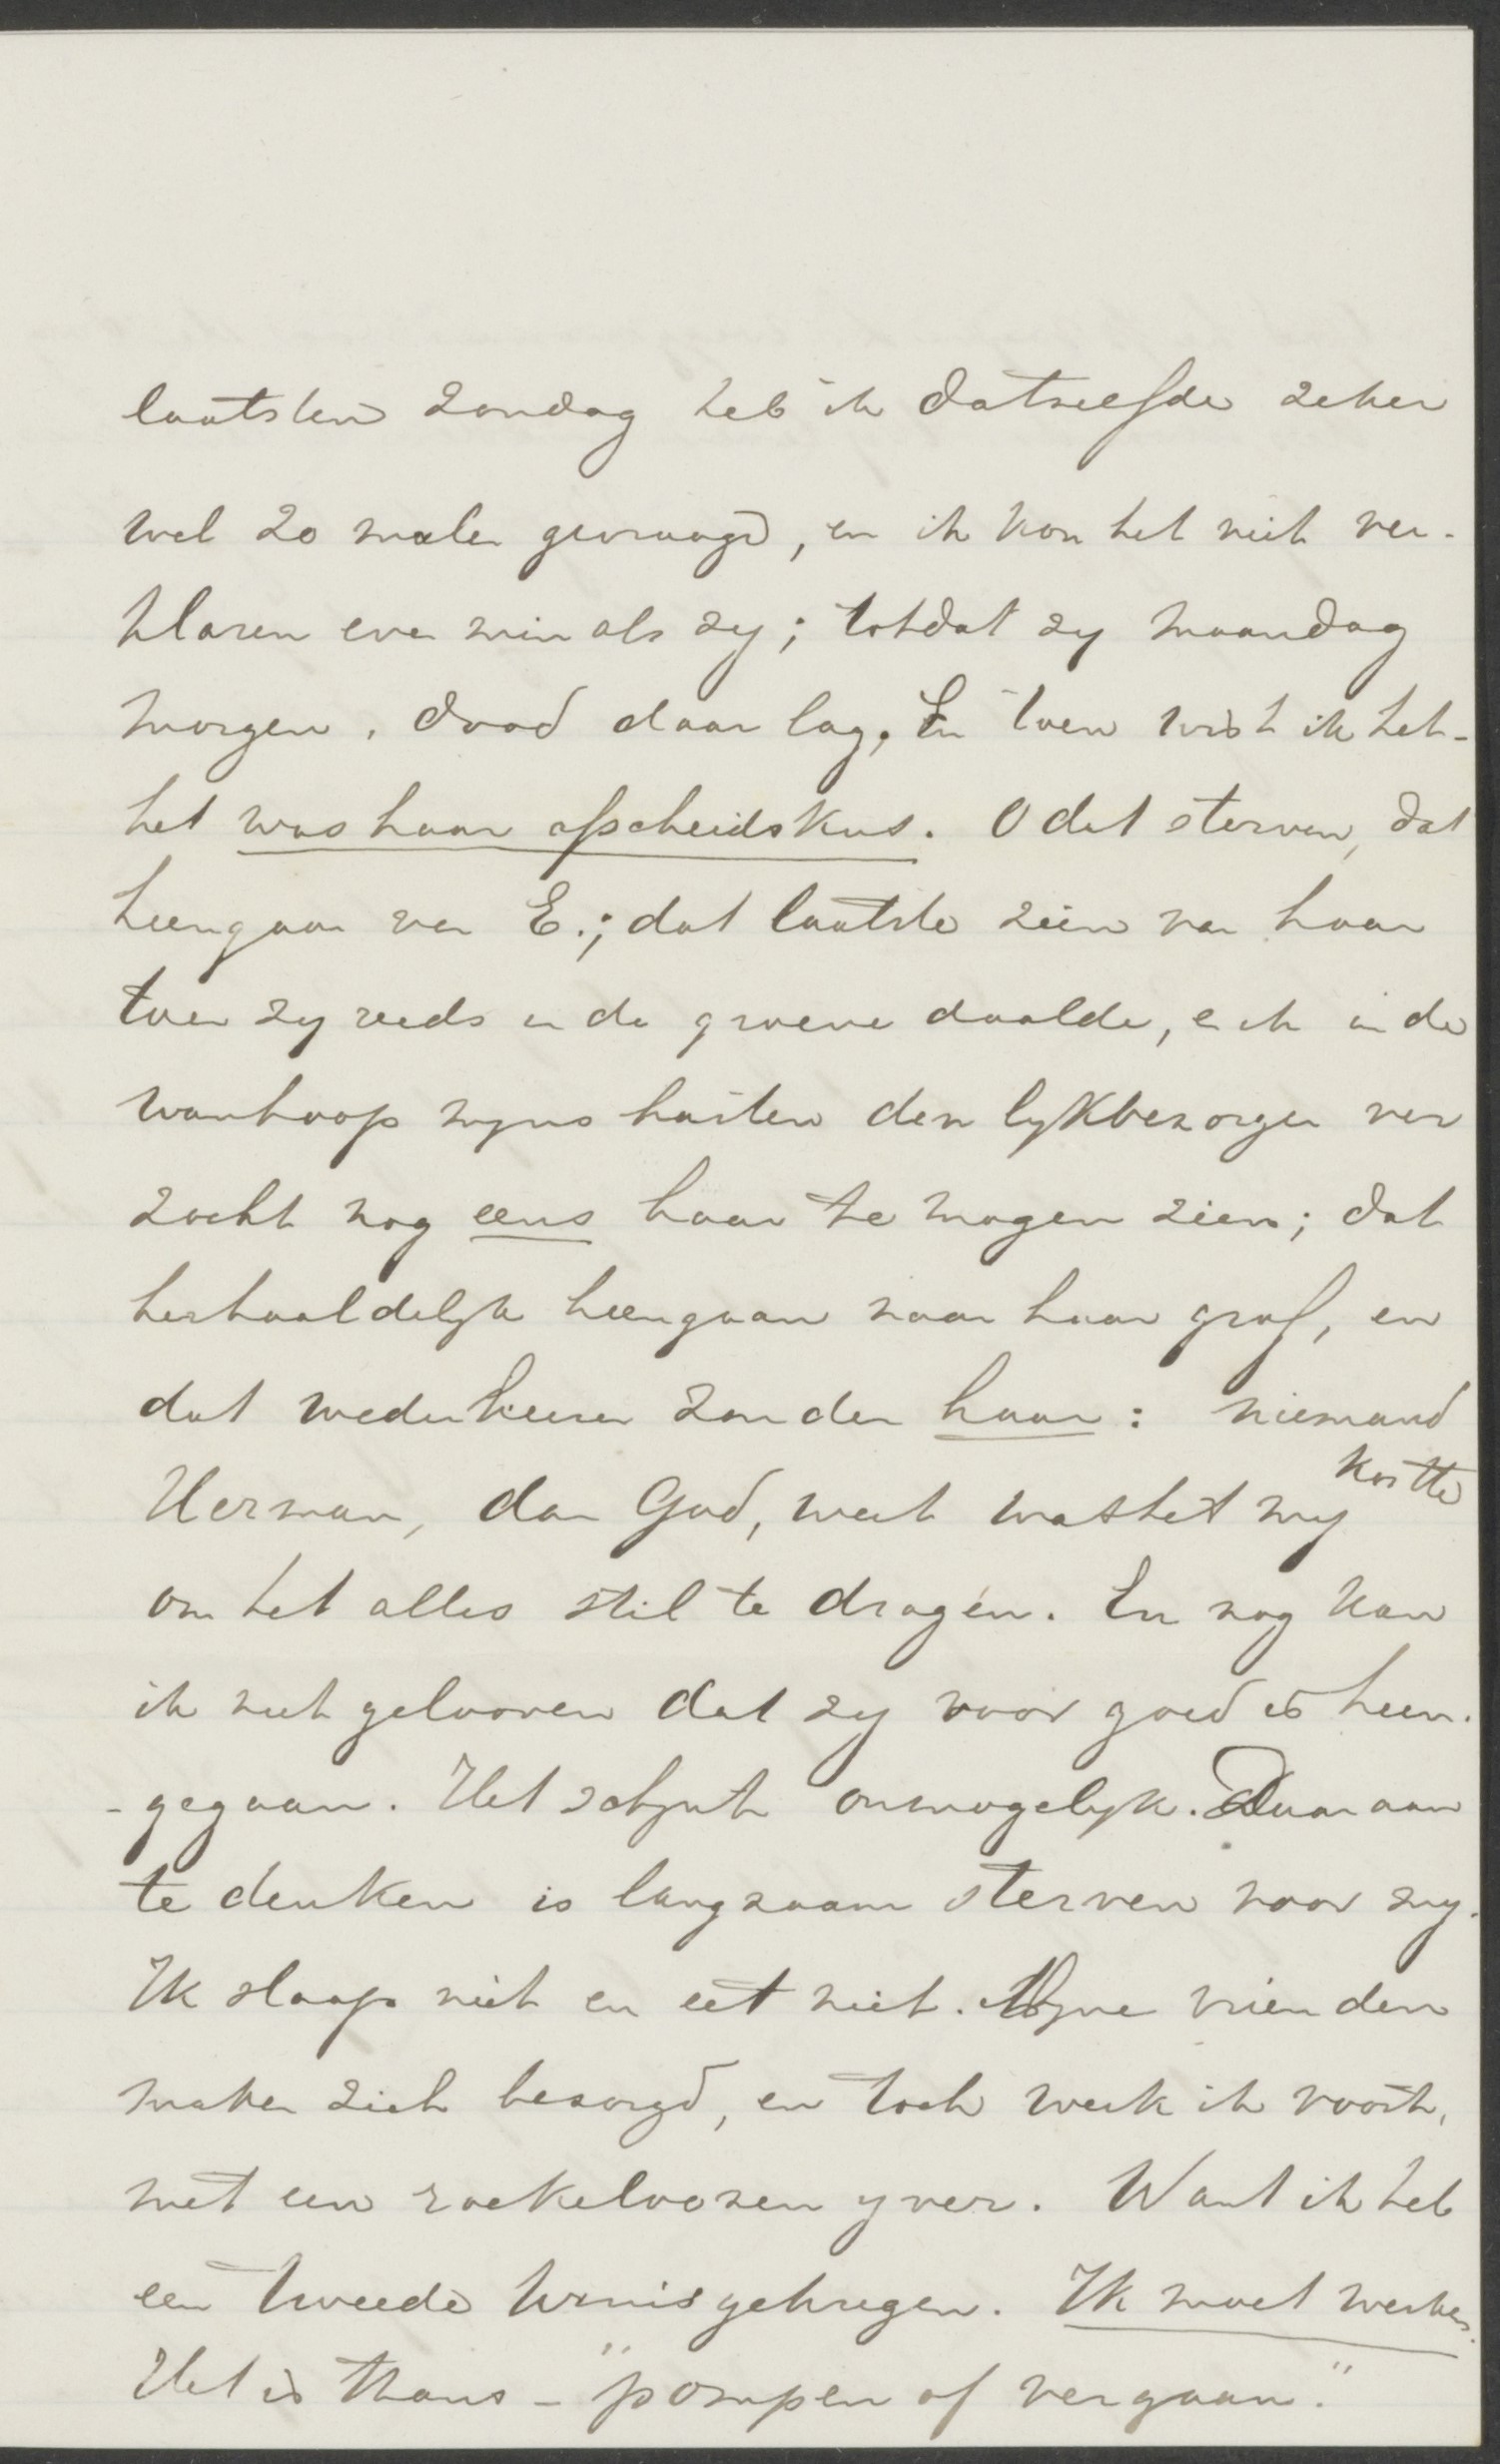 laatsten Zondag heb ik datzelfde zeker
wel 20 malen gevraagd, en ik kon het niet ver-
klaren even min als zy; totdat zy Maandag
morgen, dood daar lag. En toen wist ik het -
het was haar afscheidskus. O dat sterven, dat
heengaan van E.; dat laatste zien van haar
toen zy reeds in de groeve daalde, en ik in de
wanhoop myns harten den lykbezorger ver
zocht nog eens haar te mogen zien; dat
herhaaldelyk heengaan naar haar graf, en
dat wederkeeren zonder haar: niemand
Herman, dan God, weet wat het my kostte
om het alles stil te dragen. En nog kan
ik niet gelooven dat zy voor goed is heen-
-gegaan. Het schynt onmogelyk. Daar aan
te denken is langzaam sterven voor my.
Ik slaap niet en eet niet. Myne vrienden
maken zich bezorgd, en toch werk ik voort,
met een roekeloozen yver. Want ik heb
een tweede kruis gekregen. Ik moet werken.
Het is thans - "pompen of vergaan."